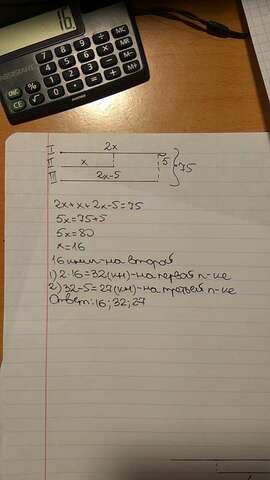 16
I 2x
II x 5 75
III 2x-5
2x+x+2x-5=75
5x=75+5
5x=80
x=16
16 книг-на второй
1) 2·16=32(кн)-на первой п-ке
2) 32-5=27(кн)-на третьей п-ке
Ответ: 16; 32; 27